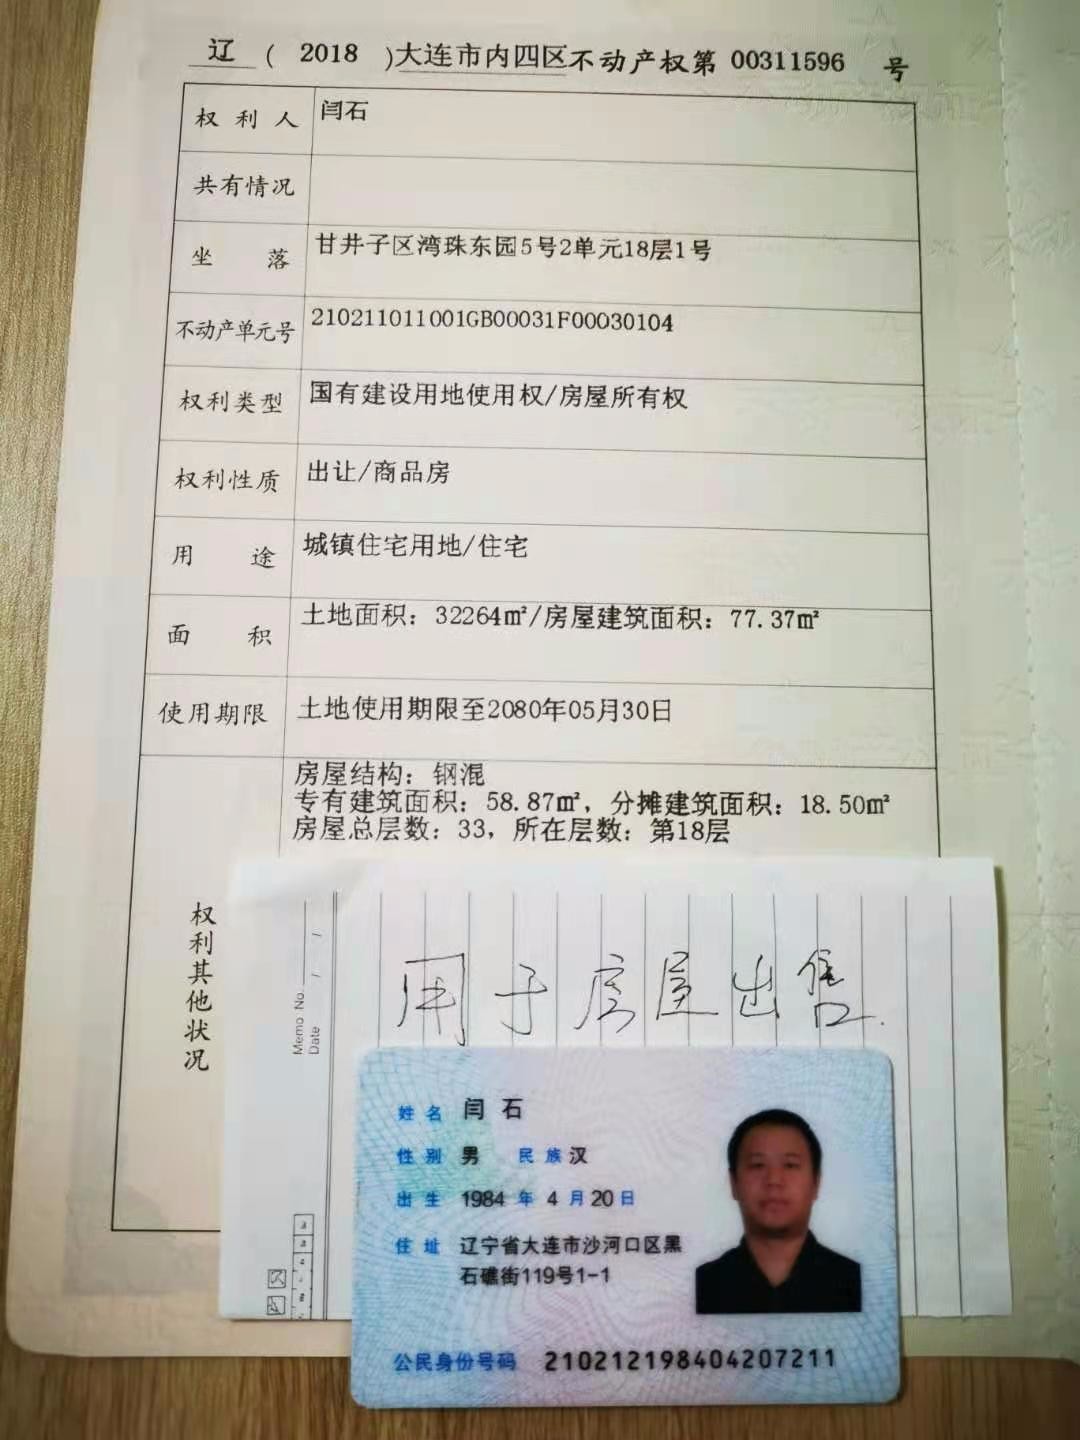 辽 ( 2018 )大连市内四区不动产权第 00311596 号
权利人 闫石
共有情况
坐落 甘井子区湾珠东园5号2单元18层1号
不动产单元号 210211011001GB00031F00030104
权利类型 国有建设用地使用权/房屋所有权
权利性质 出让/商品房
用途 城镇住宅用地/住宅
面积 土地面积：32264㎡/房屋建筑面积：77.37㎡
使用期限 土地使用期限至2080年05月30日
权利其他状况
房屋结构：钢混
专有建筑面积：58.87㎡，分摊建筑面积：18.50㎡
房屋总层数：33，所在层数：第18层
Memo No.
Date / /
用于房屋出售.
姓名 闫石
性别 男 民族 汉
出生 1984 年 4 月 20 日
住址 辽宁省大连市沙河口区黑
石礁街119号1-1
公民身份号码 210212198404207211